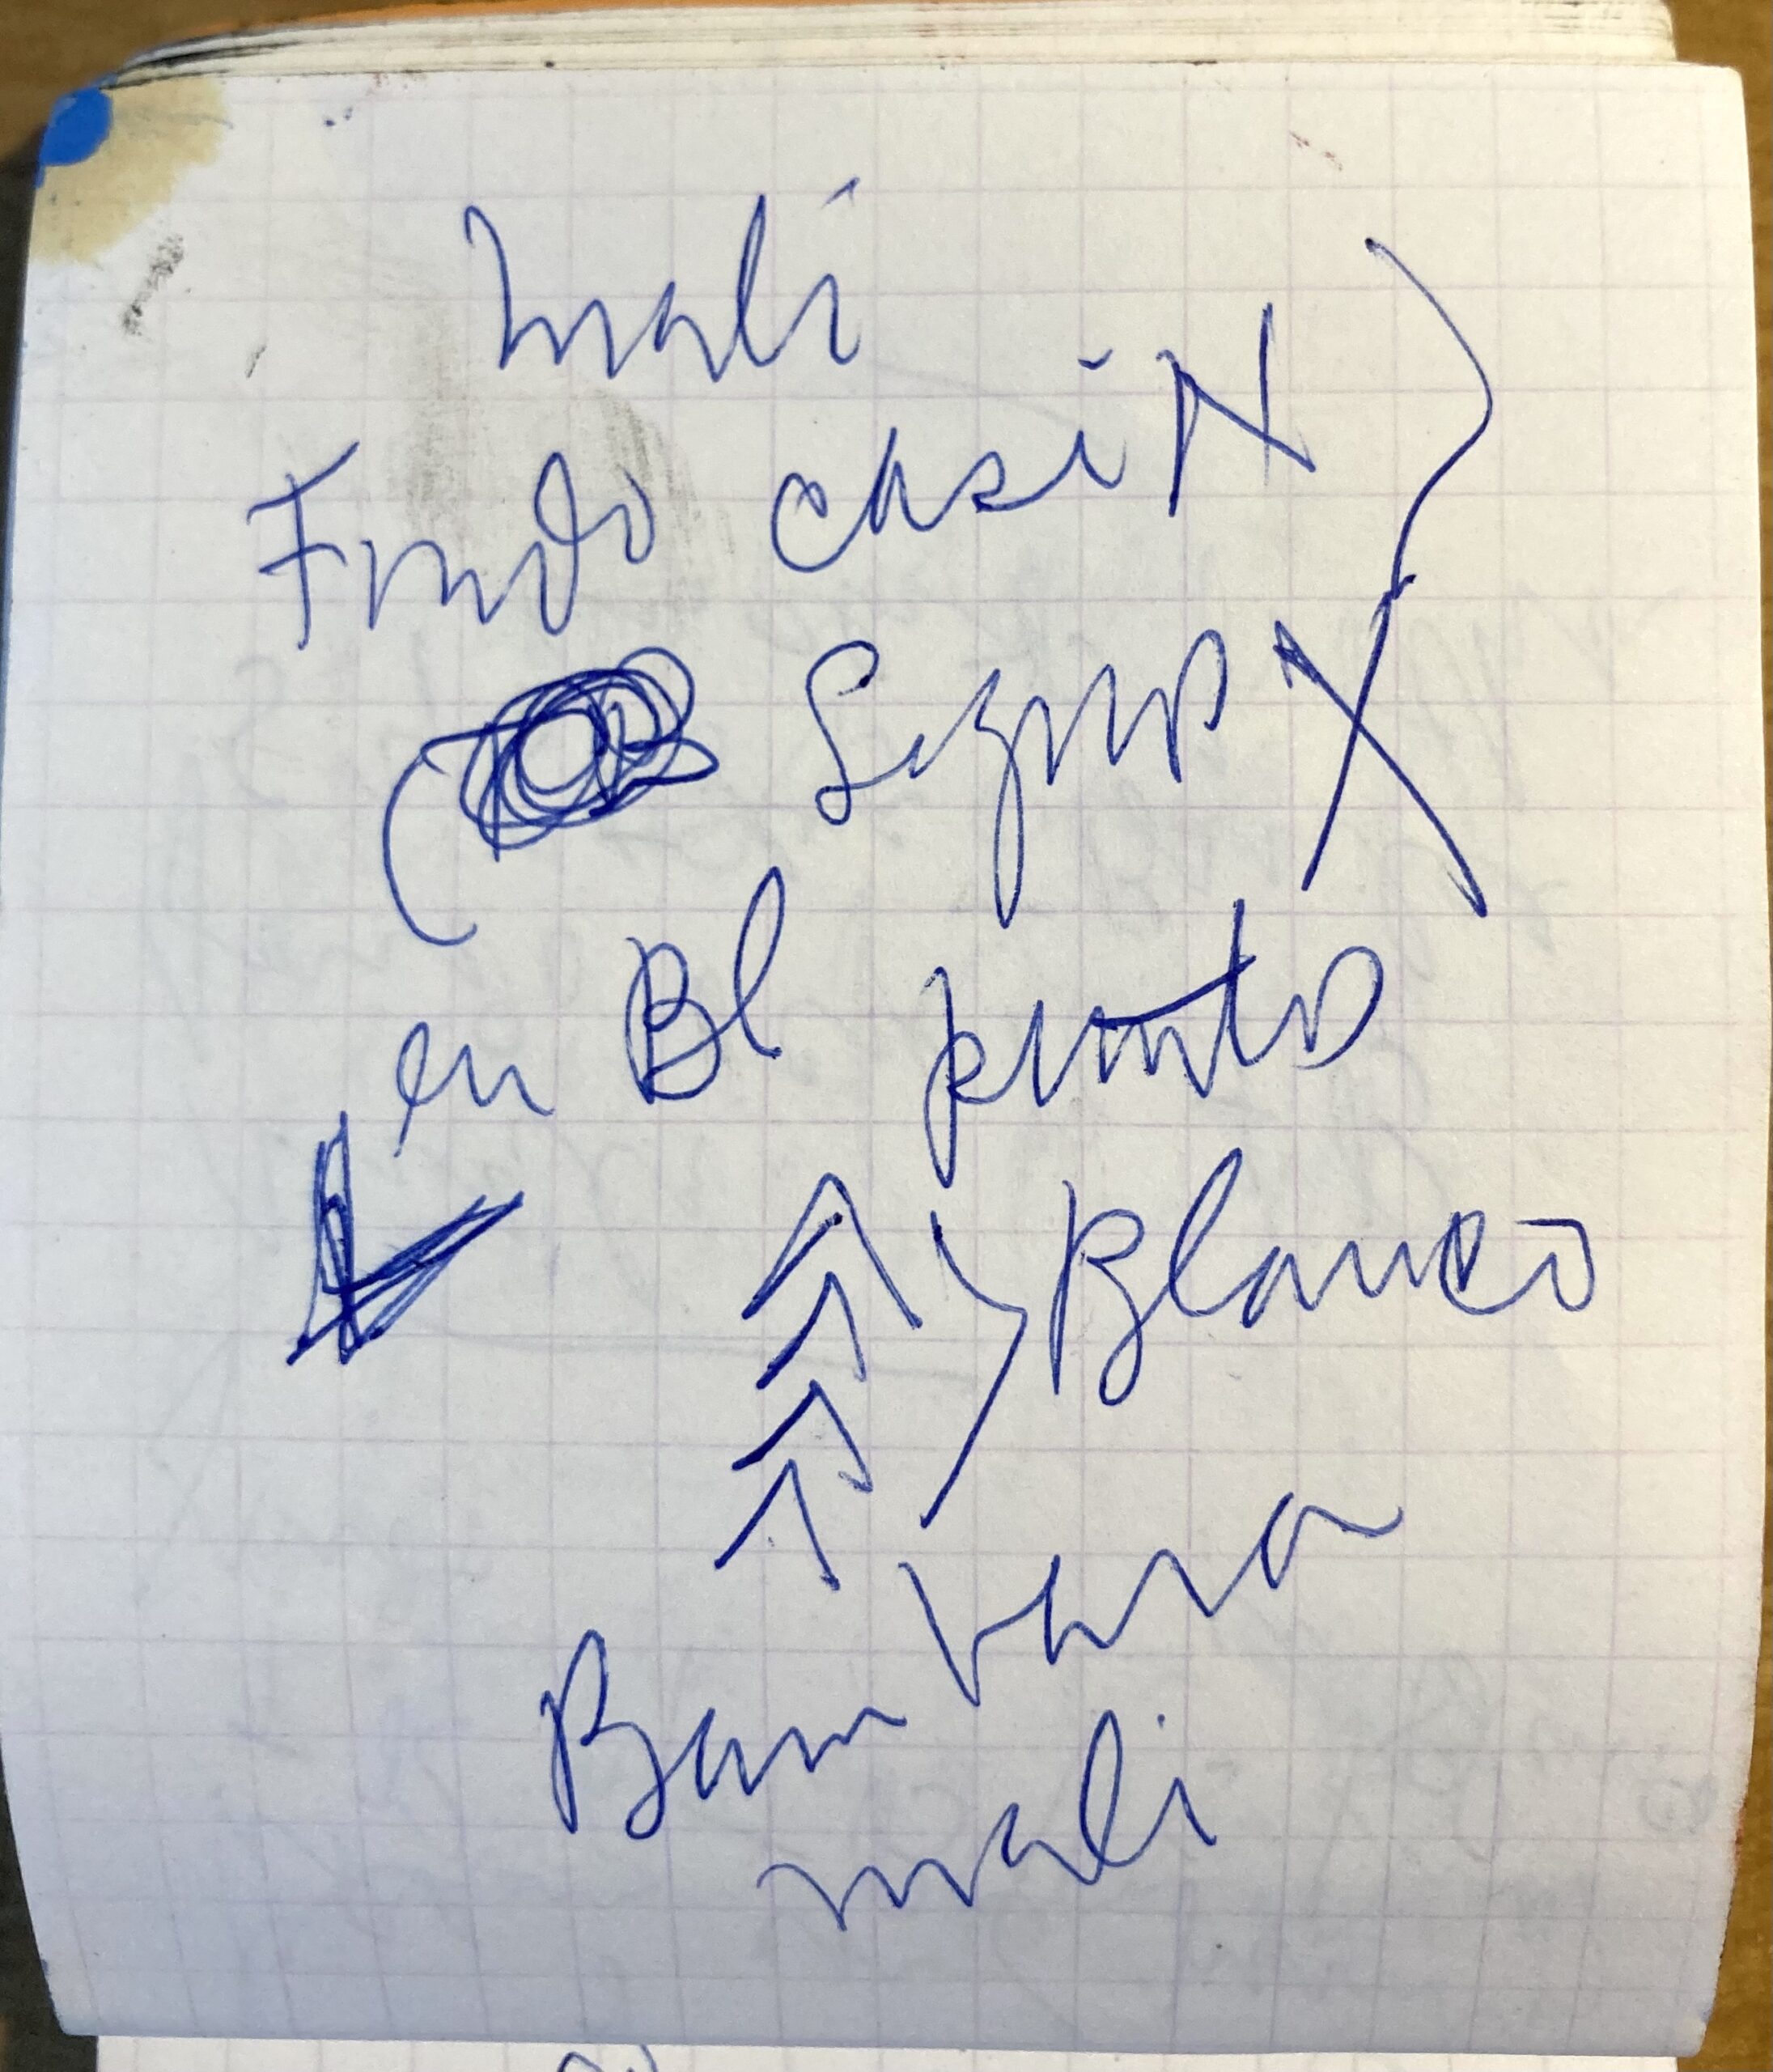 Mali
Fondo casi N
Signo X
en Bl punto
Blanco
Bambara
Mali